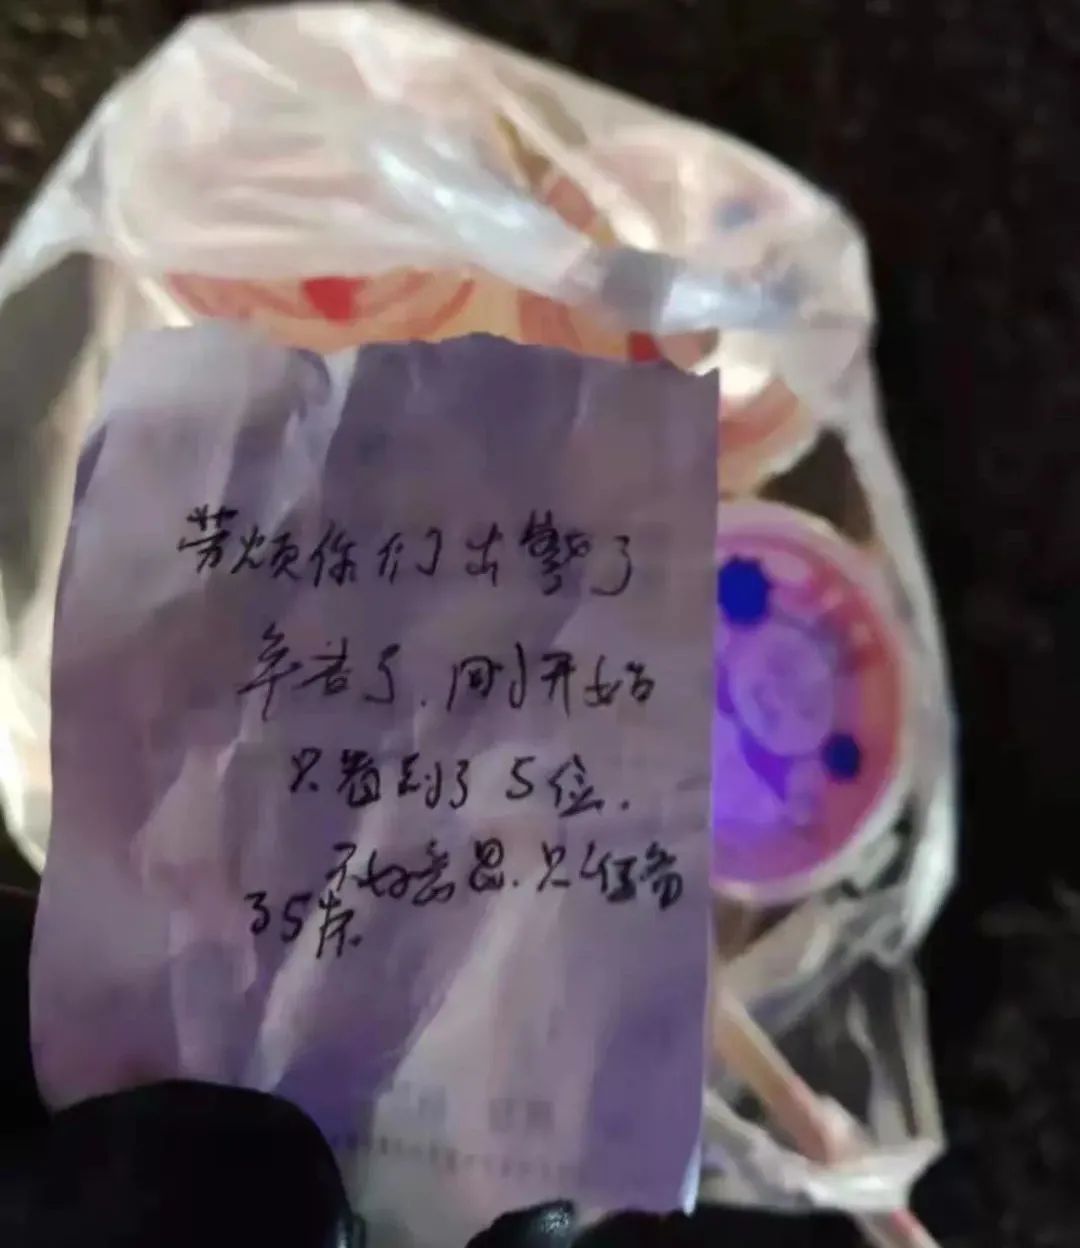 劳烦你们出警了
辛苦了.刚开始
只看到了5位.
不好意思.只准备
了5杯.